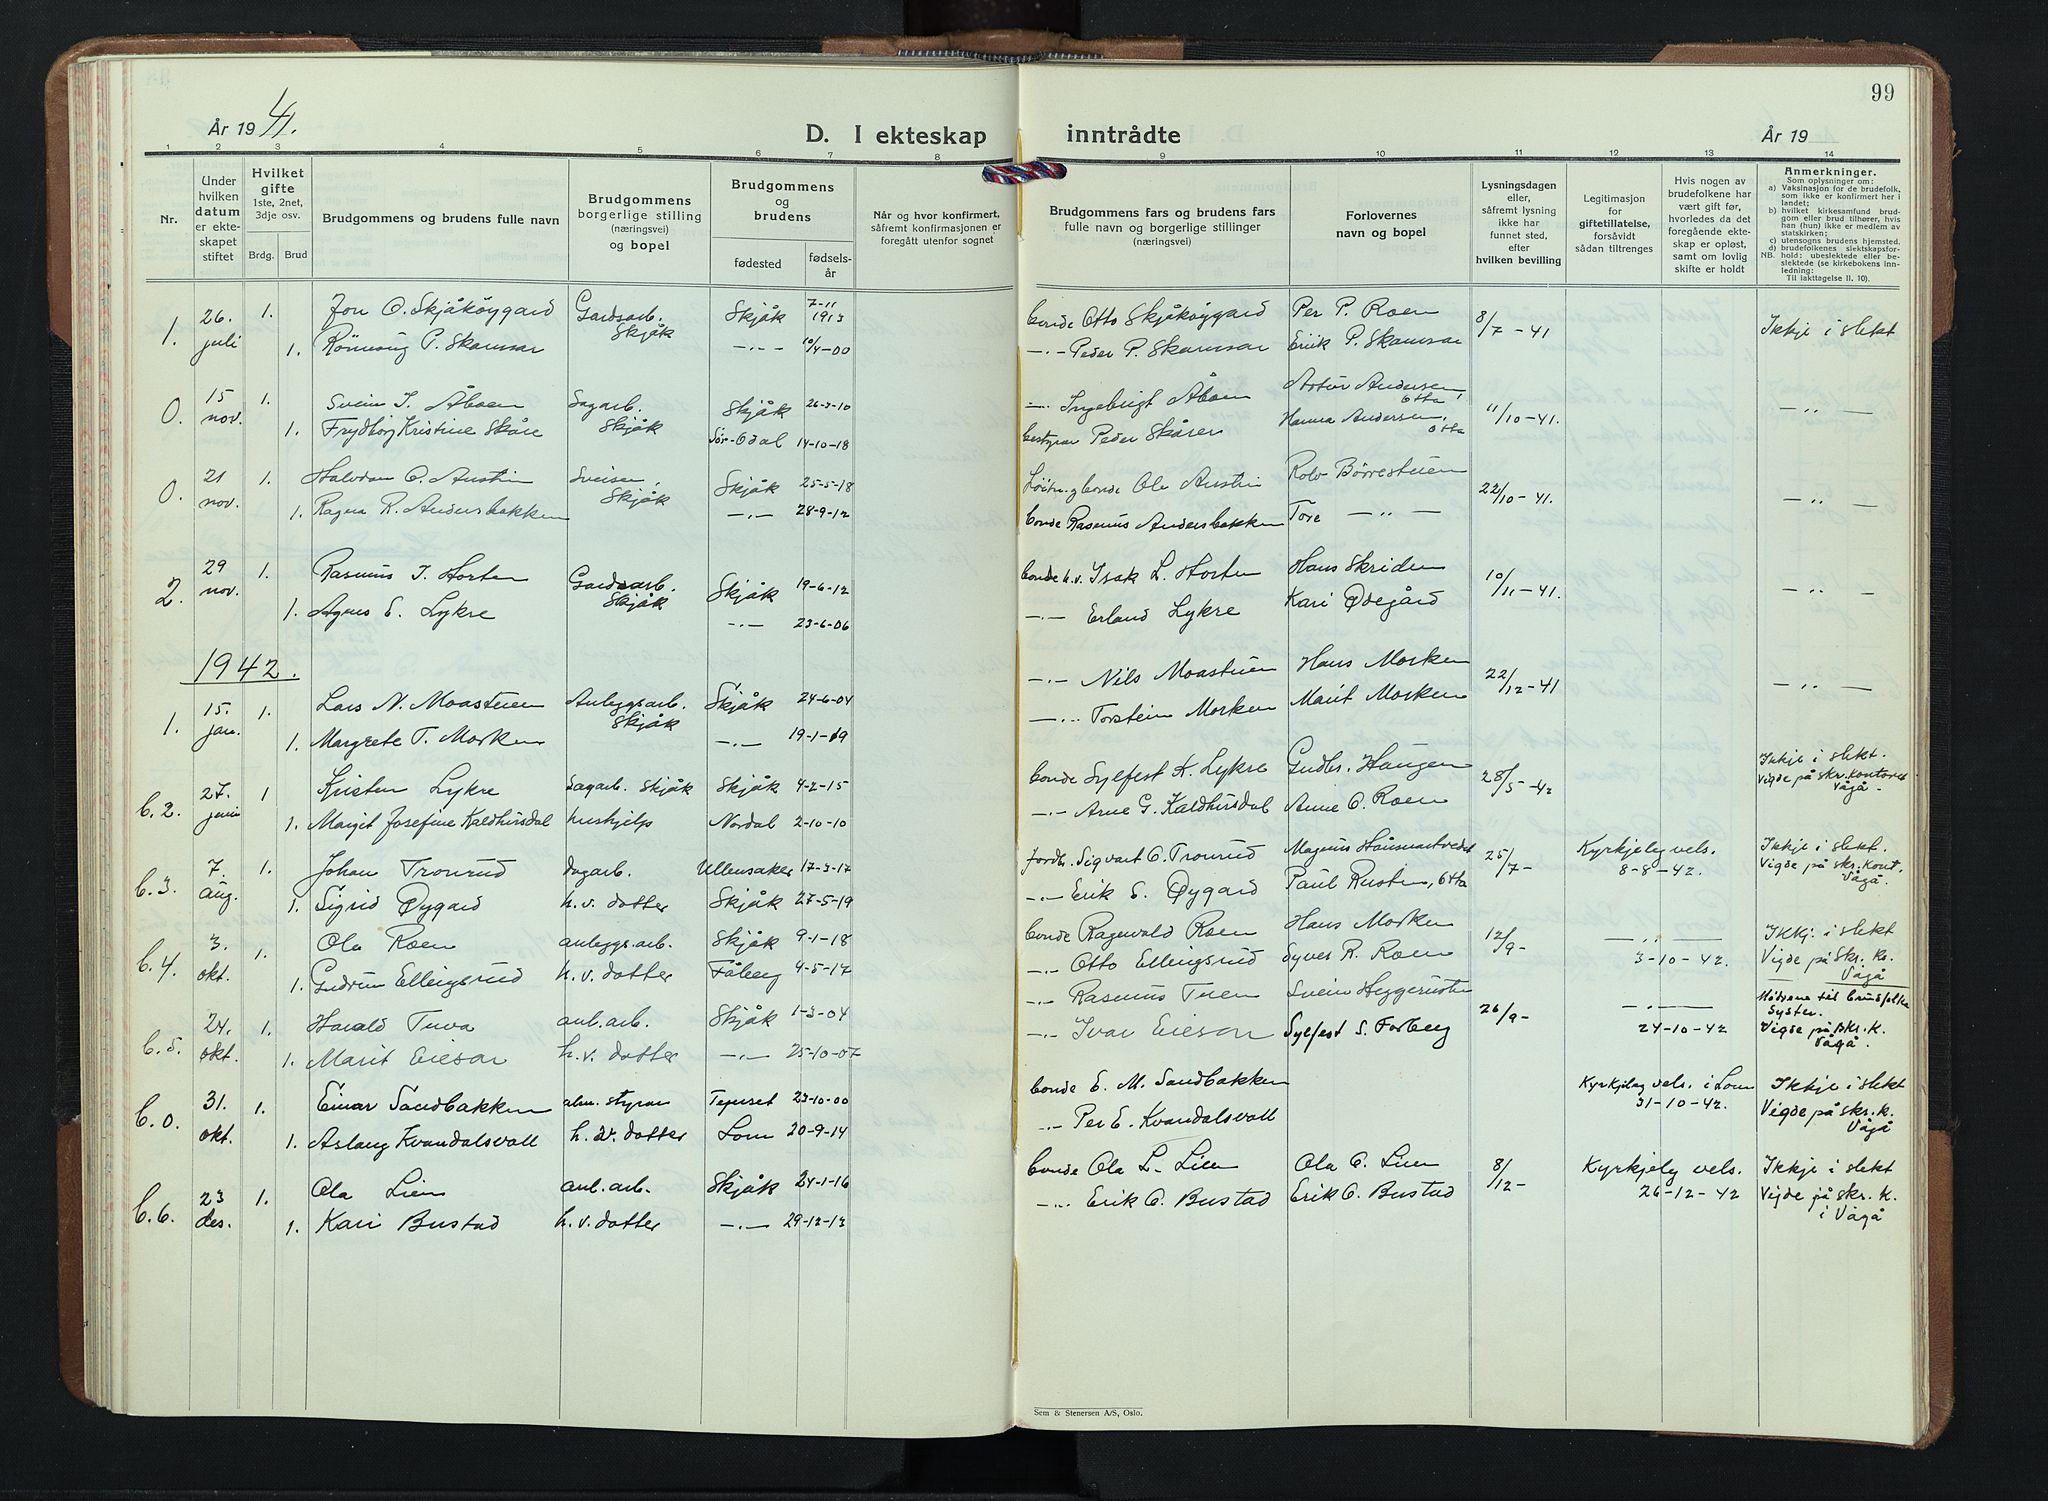 99
År 1941.
D. I ekteskap inntrådte
År 19
1 2 3 4 5 6 7 8 9 10 11 12 13 14
Nr.
Under hvilken datum er ekteskapet stiftet
Hvilket gifte 1ste, 2net, 3dje osv.
Brdg. Brud
Brudgommens og brudens fulle navn
Brudgommens borgerlige stilling (næringsvei) og bopel
Brudgommens og brudens
fødested
fødselsår
Når og hvor konfirmert, såfremt konfirmasjonen er foregått utenfor sognet
Brudgommens fars og brudens fars fulle navn og borgerlige stillinger (næringsvei)
Forlovernes navn og bopel
Lysningsdagen eller, såfremt lysning ikke har funnet sted, efter hvilken bevilling
Legitimasjon for giftetillatelse, forsåvidt sådan tiltrenges
Hvis nogen av brudefolkene har vært gift før, hvorledes da det foregående ekteskap er opløst, samt om lovlig skifte er holdt
Anmerkninger.
Som oplysninger om:
a) Vaksinasjon for de brudefolk, som ikke er konfirmert her i landet;
b) hvilket kirkesamfund brudgom eller brud tilhører, hvis han (hun) ikke er medlem av statskirken;
c) utensogns brudens hjemsted.
d) brudefolkenes slektskapsforhold: ubeslektede eller beslektede (se kirkebokens innledning:
NB. Til iakttagelse II. 10).
1. 26. juli 1. Jon O. Skjåkøygard Gardsarb. Skjåk Skjåk 7-11 1913 bonde Otto Skjåkøygard Per P. Roen 8/7-41 Ikkje i slekt
1. Rönnaug P. Skamsar -.- 10/4-00 -.- Peder P. Skamsar Erik P. Skamsar
0. 15 nov. 1. Svein I. Åboen Sagarb. Skjåk Skjåk 26-3-10 -.- Ingebrigt Åboen Artur Andersen, Otta 11/10-41. -,,-
1. Frydborg Kristine Skåre Sør-Odal 14-10-18 bestyrar Peder Skåren Hanna Andersen, Otta
0. 21 nov. 1. Halvdan O. Austin Sveiser, Skjåk Skjåk 25-5-18 Løitn. og bonde Ole Austin Rolv Børrestuen 22/10-41. -,,-
1. Ragna R. Andersbakken -.- 28-9-12 bonde Rasmus Andersbakken Tore -,,-
2. 29 nov. 1. Rasmus I. Horten Gardsarb. Skjåk Skjåk 19-6-12 bonde h.v. Isak L. Horten Hans Skriden 10/11-41. -,,-
1. Agnes E. Lykre -.- 23-6-06 -.- Erland Lykre Kari Ødegård
1942.
1. 15. jan. 1. Lars N. Moastuen Anleggsarb. Skjåk Skjåk 24-6-04 -.- Nils Moastuen Hans Morken 22/12-41 -,,-
1. Margrete T. Morken -.- 19-1-19 -.- Torstein Morken Marit Morken
b.2. 27. juni 1 Kristen Lykre Sagarb. Skjåk Skjåk 4-2-15 bonde Sylfest K. Lykre Gudbr. Haugen 28/5-42 Ikkje i slekt. Vigde på skr.kontoret Vågå.
1. Margit Josefine Kaldhusdal hushjelp Nordal 2-10-10 -.- Arne G. Kaldhusdal Anne O. Roen
b.3. 7. aug. 1. Johan Tronrud dagarb. Ullensaker 17-3-17 jordbr. Sigvart O. Tronrud Magnus 25/7- Kyrkjeleg vels. 8-8-42. Ikkje i slekt. Vigde på skr.kont. Vågå.
1. Sigrid Øygard h.v. dotter Skjåk 27-5-19 -.- Erik E. Øygard Paul Rusten, Otta
b.4. 3. okt. 1. Ola Roen anleggs.arb. Skjåk 9-1-18 bonde Ragnvald Roen Hans Morken 12/9- -,,- 3-10-42. Ikkj. i slekt Vigde på Skr. k. Vågå
1. Gudrun Ellingsrud h.v. dotter Fåberg 4-5-17 -.- Otto Ellingsrud Syver R. Roen
b.5. 24. okt. 1. Harald Tuva anl.arb. Skjåk 1-3-04 -.- Rasmus Tuen Svein Heggerusten 26/9- -.- 24-10-42 Mødrene til brudfolka Syster. Vigde på skr.k. Vågå.
1. Marit Eiesar h.v. dotter -.- 25-10-07 -.- Ivar Eiesar Sylfest S. Forberg
b.0. 31. okt. 1. Einar Sandbakken alm. styrar Tynset 23-10-00 bonde E. M. Sandbakken Kyrkjeleg vels. i Lom 31-10-42. Ikkje i slekt Vigde på skr.k. Vågå
1. Aslaug Kvandalsvoll h.v. dotter Lom 20-9-14 -.- Per E. Kvandalsvoll
b.6. 23 des. 1. Ola Lien anl.arb. Skjåk 24-1-16 bonde Ola L. Lien Ola O. Lien 8/12- Kyrkjeleg vels. 26-12-42 Ikkje i slekt Vigde på skr. k. i Vågå
1. Kari Bustad h.v. dotter -.- 29-12-13 -.- Erik O. Bustad Erik O. Bustad
Sem & Stenersen A/S, Oslo.